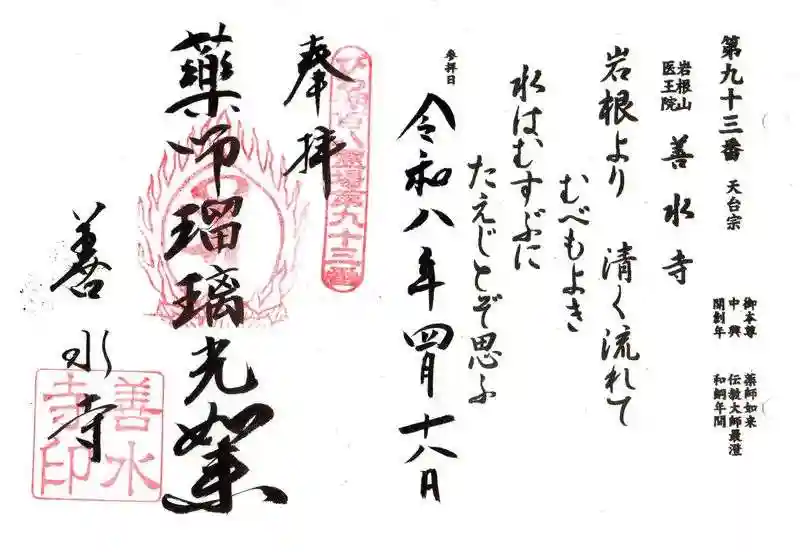 第九十三番 天台宗
岩根山
医王院
善水寺
御本尊 薬師如来
中興 伝教大師最澄
開創年 和銅年間
岩根より 清く流れて
むべもよき
水はむすぶに
たえじとぞ思ふ
参拝日
令和八年四月十八日
奉拝
霊場第九十三番
藥師瑠璃光如来
善水寺
善水
寺印